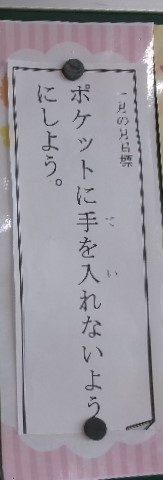 一月の月目標
ポケットに手を入れないよう
にしよう。